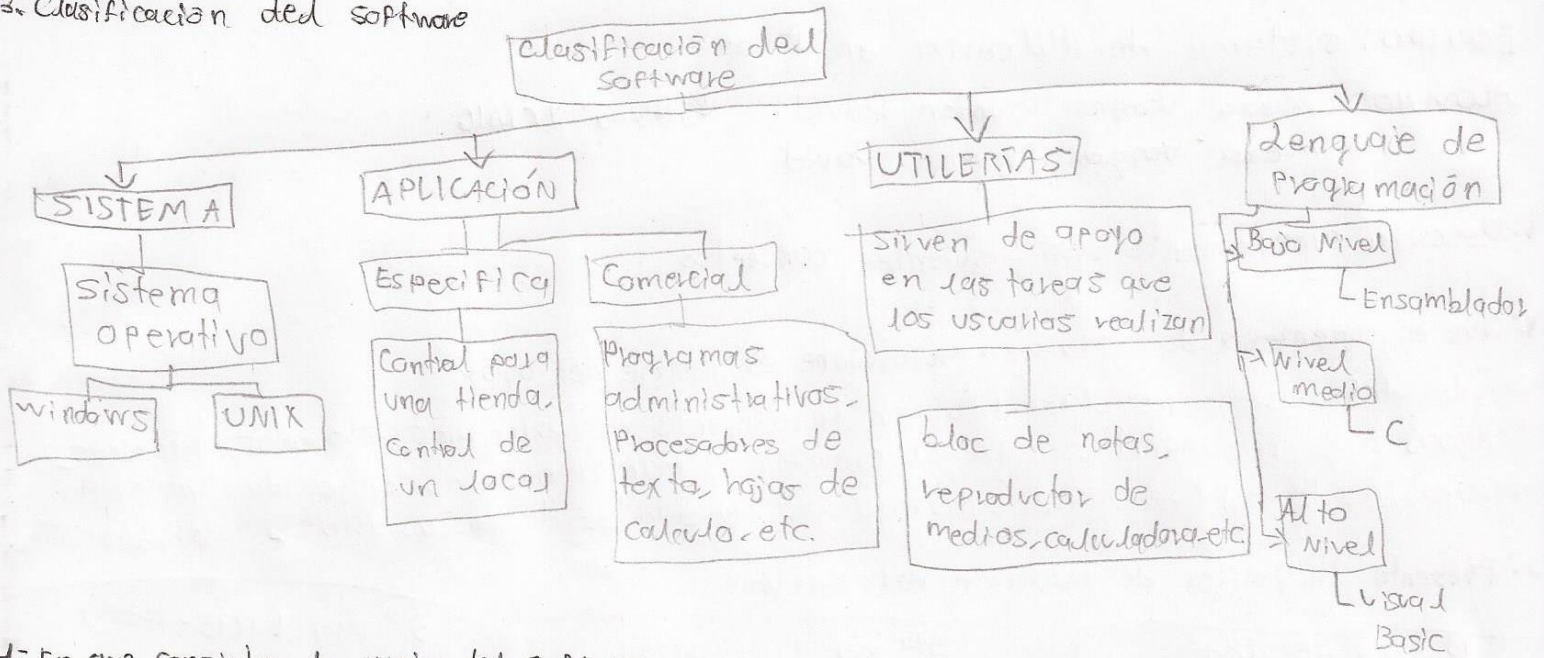 3. Clasificación ded software
Clasificación ded
software
SISTEMA
Sistema
operativo
Windows
UNIX
APLICACIÓN
Especifica
Control para
una tienda,
Control de
un local
Comercial
Programas
administrativos,
Procesadores de
texto, hojas de
calculo, etc.
UTILERÍAS
Sirven de apoyo
en las tareas que
los usuarios realizan
bloc de notas,
reproductor de
medios, calculadora, etc
Lenguaje de
Programación
Bajo Nivel
Ensamblador
Nivel
medio
C
Alto
Nivel
Visual
Basic